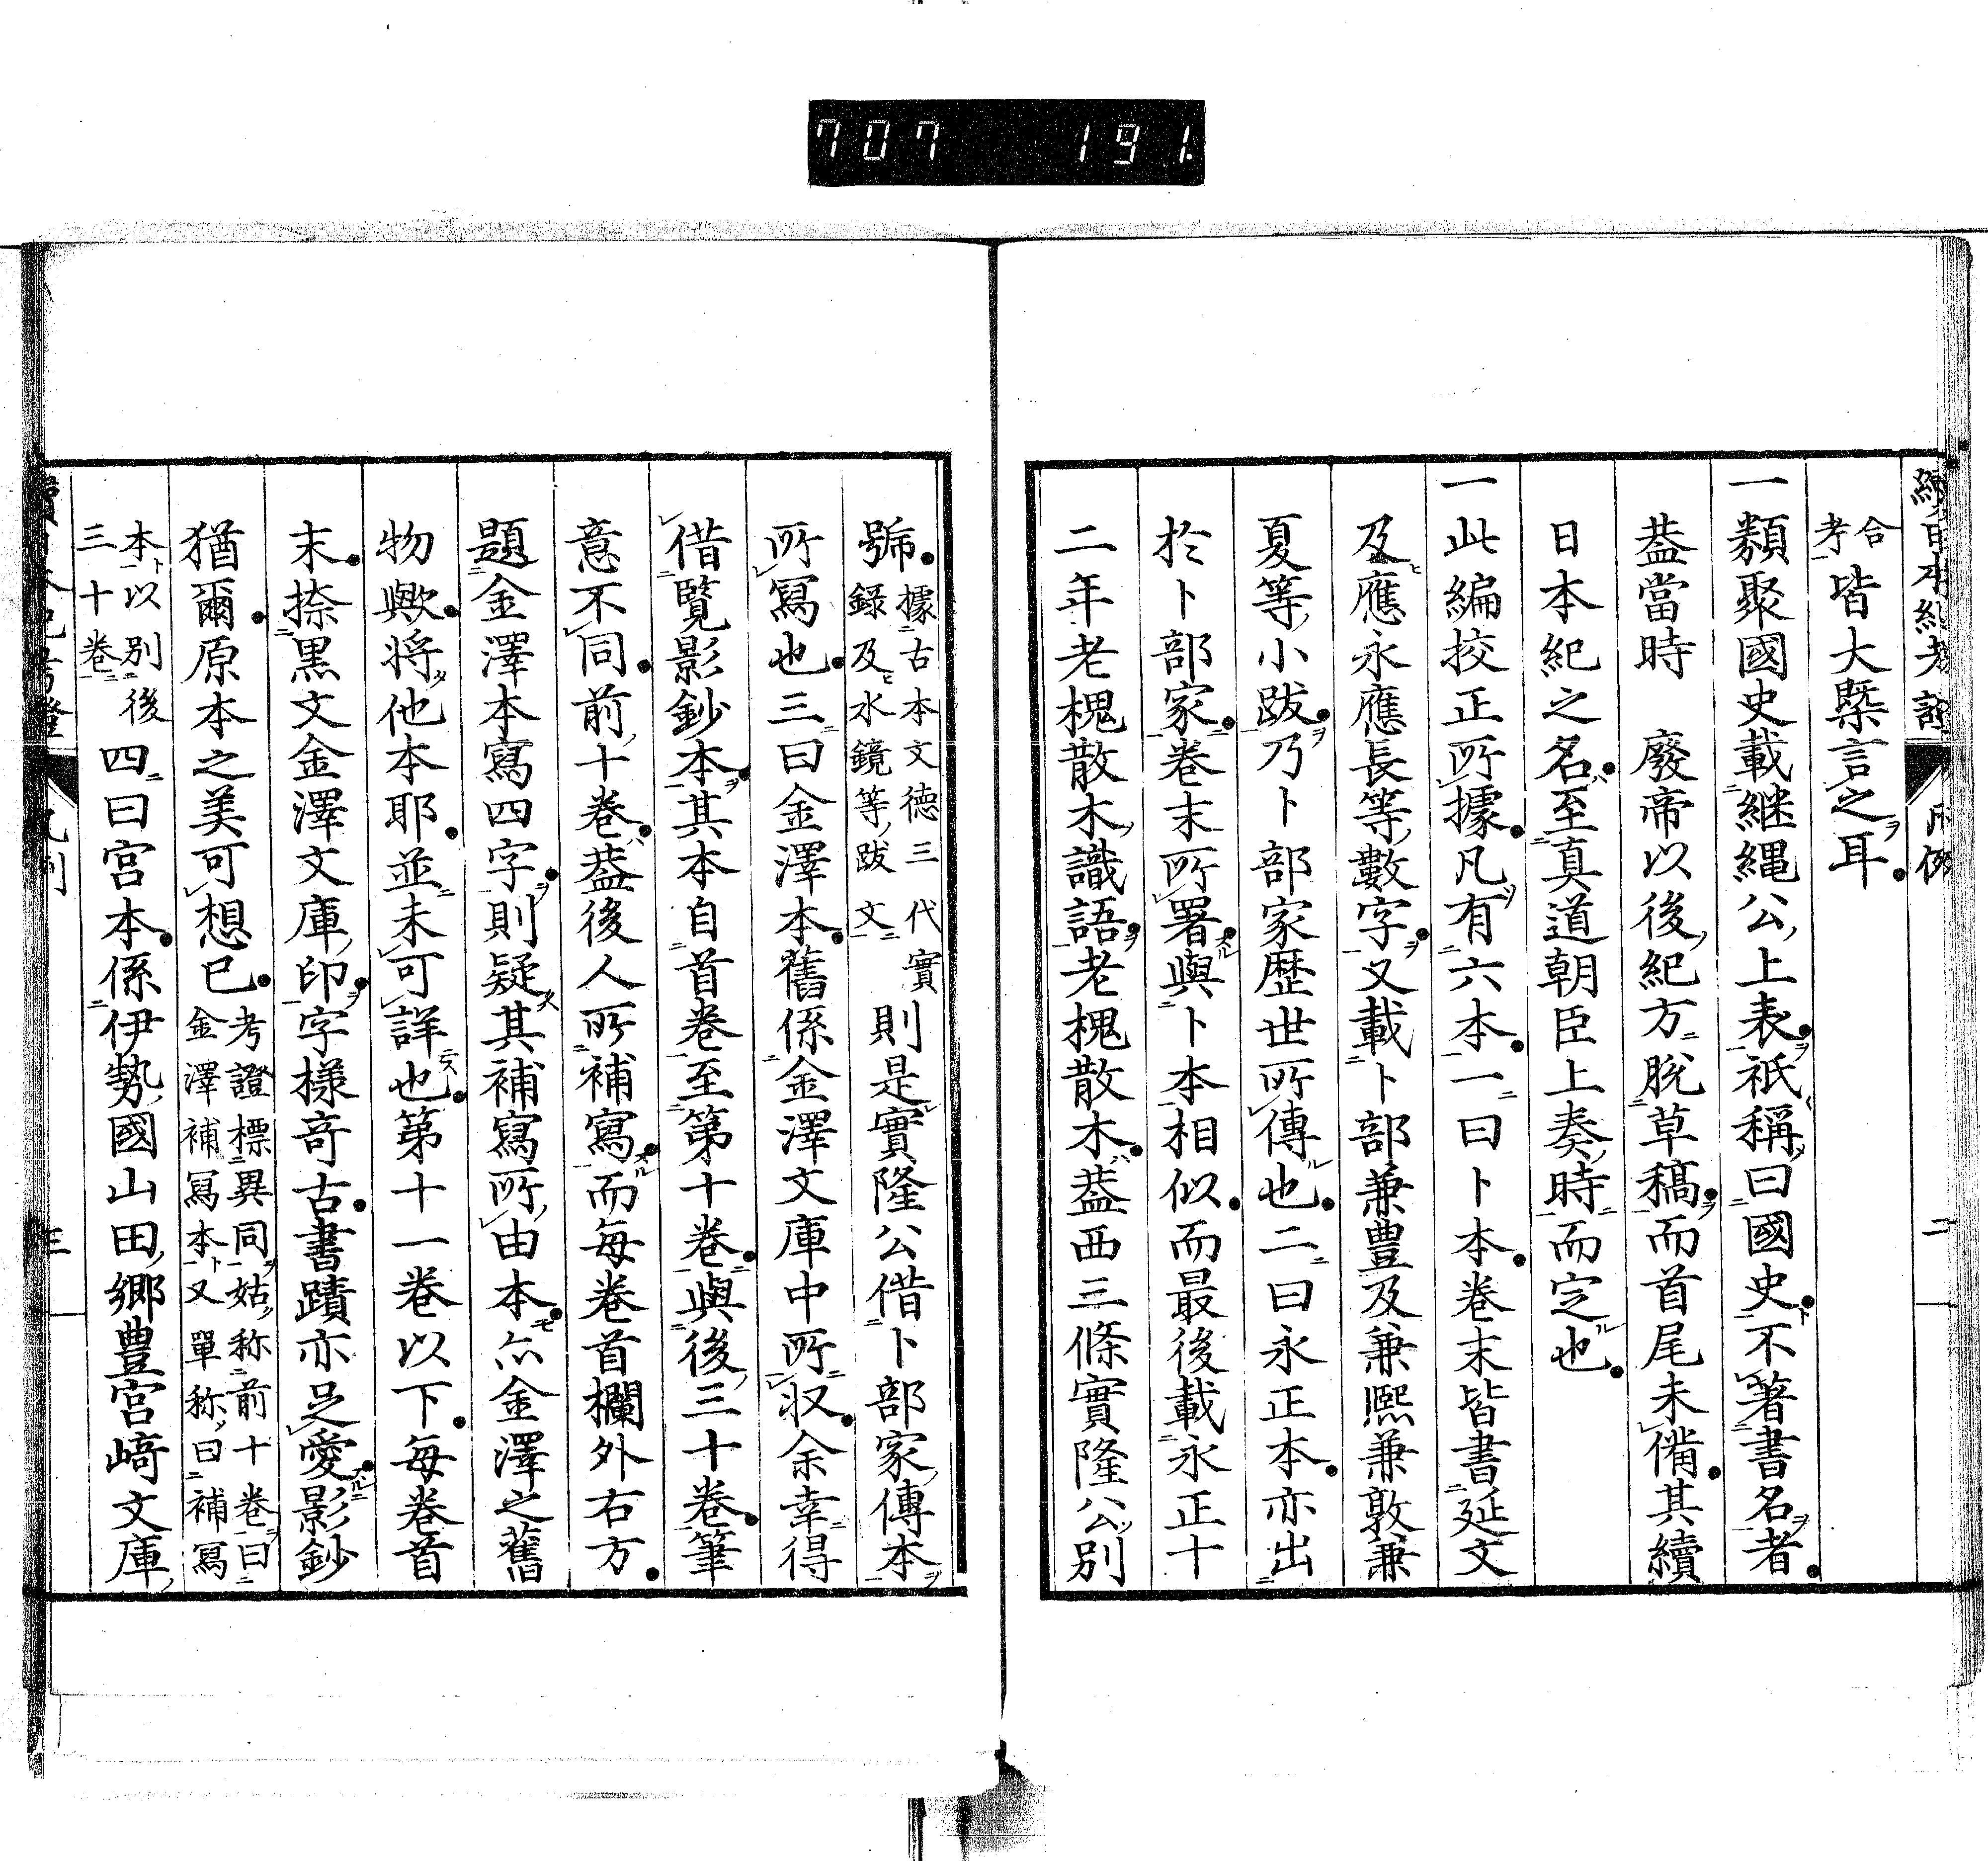 707 191.
續日本紀考證 凡例 二
合考皆大槩言之耳
一類聚國史載継縄公上表祇稱曰國史不著書名者
葢當時 廢帝以後紀方脱草稿而首尾未備其續
日本紀之名至真道朝臣上奏時而定也
一此編挍正所據凡有六本一曰卜本卷末皆書延文
及應永應長等數字又載卜部兼豊及兼熈兼敦兼
夏等小跋乃卜部家歴世所傳也二曰永正本亦出
於卜部家卷末所署與卜本相似而最後載永正十
二年老槐散木識語老槐散木葢西三條實隆公別
號據古本文德三代實録及水鏡等跋文則是實隆公借卜部家傳本
所寫也三曰金澤本舊係金澤文庫中所収余幸得
借覽影鈔本其本自首卷至第十卷與後三十卷筆
意不同前十卷葢後人所補寫而每卷首欄外右方
題金澤本寫四字則疑其補寫所由本亦金澤之舊
物歟将他本耶並未可詳也第十一卷以下每卷首
末捺黒文金澤文庫印字樣竒古書蹟亦足愛影鈔
猶爾原本之美可想已考證標異同姑称前十卷曰金澤補冩本又單称曰補冩
本以別後三十卷四曰宮本係伊勢國山田郷豊宮﨑文庫
三